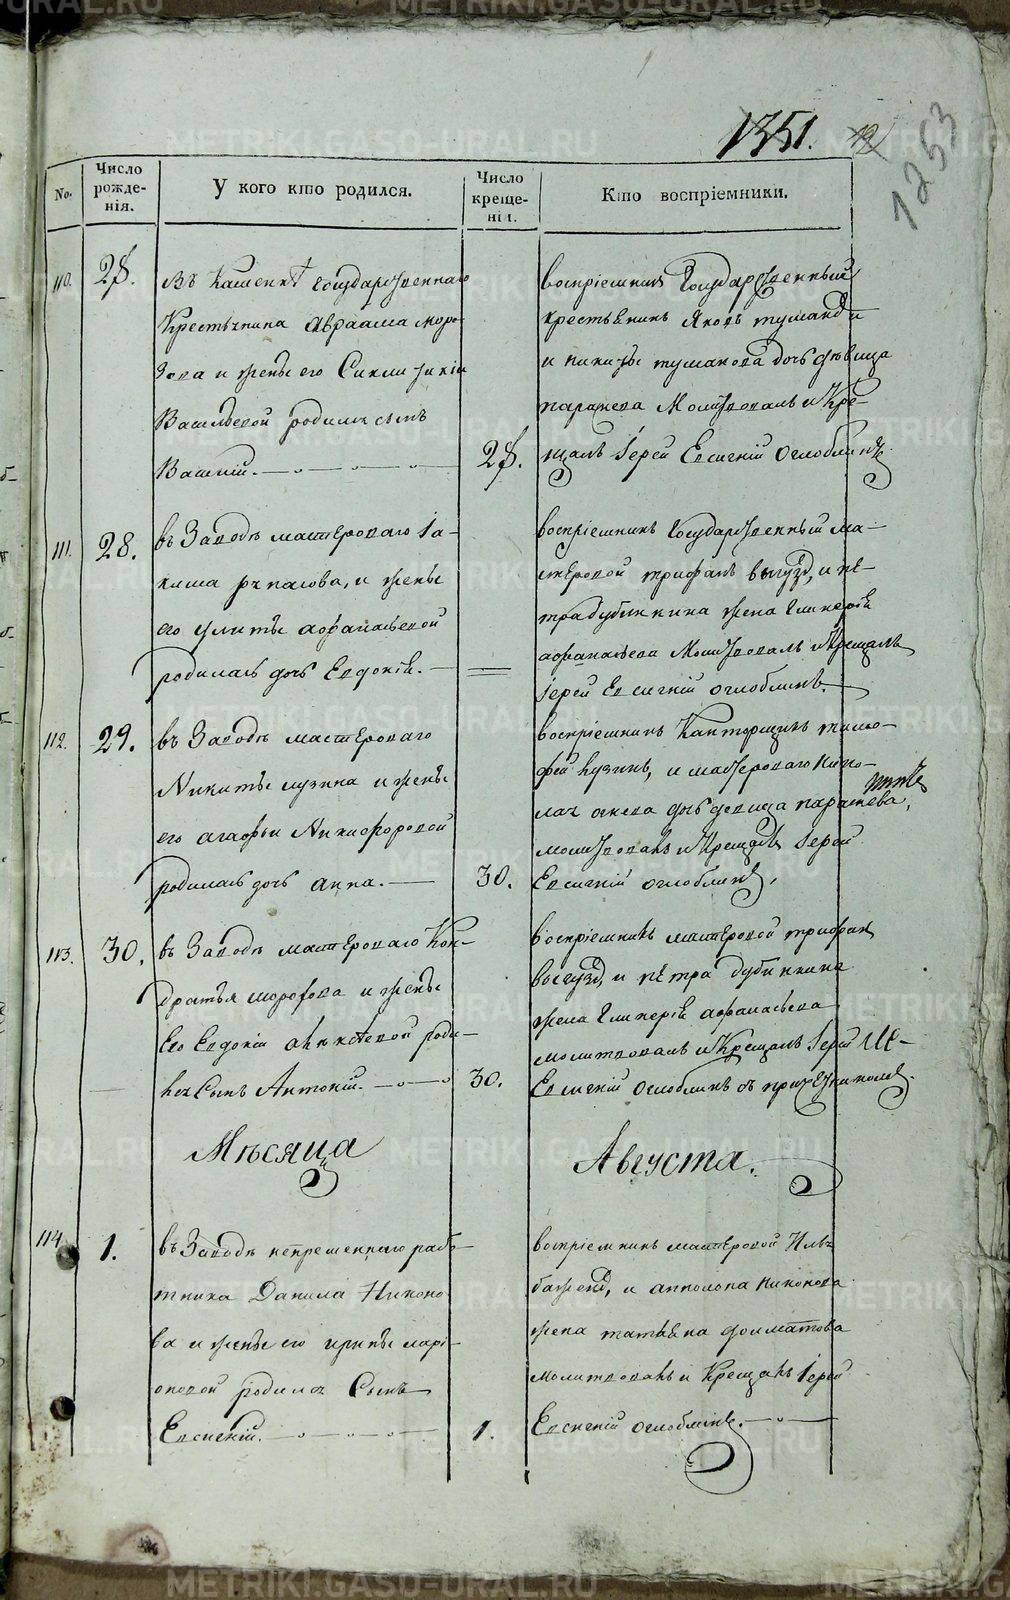 1351.
1253
No.
Число рожде-
нія.
У кого кто родился.
Число креще-
нія.
Кто воспріемники.
110.
28.
Въ Государственнаго
Крестьянина Авраама Моро-
зова и жены его
Васильевой родился сынъ
Василій.
28.
воспріемник Государственный
крестьянинъ Яковъ
и Никиты тушакова дочь девица
параскева Молитвовалъ и Кре-
щалъ Іерей Евсигній Оглоблинъ.
111.
28.
въ Заводѣ мастероваго Іа-
кима, и жены
его улиты афанасьевой
родилась дочь Евдокія.
воспріемникъ Государственный ма-
стеровой трифанъ, и пе-
тра дубинкина жена Гликерія
афанасьева Молитвовалъ и Крещалъ
Іерей Евсигній оглоблинъ.
112.
29.
въ Заводѣ мастероваго
Никиты лузина и жены
его агафьи Никифоровой
родилась дочь анна.
30.
воспріемникъ Канторщикъ тимо-
фей лузинъ, и мастероваго Нико-
лая дочь девица параскева,
молитвовалъ и Крещалъ Іерей
Евсигній оглоблинъ.
113.
30.
въ Заводѣ мастероваго Кон-
дратья морозова и жены
Его Евдокіи алексѣевой роди-
лся Сынъ Антоній.
30.
воспріемникъ мастеровой трифан
и пѣтра дубинкина
жена Гликерія афанасьева
молитвовалъ и Крещалъ Іерей
Евсигній Оглоблинъ съ
Мѣсяца
Августа.
114.
1.
въ Заводѣ непременнаго рабо-
тника Данила Никоно-
ва и жены его ирины лари-
оновой родился Сынъ
Евсигній.
1.
воспріемникъ мастеровой Илья
и Никонова
жена татьяна долматова
молитвовалъ и Крещалъ Іерей
Евсигній оглоблинъ.
METRIKI.GASO-URAL.RU